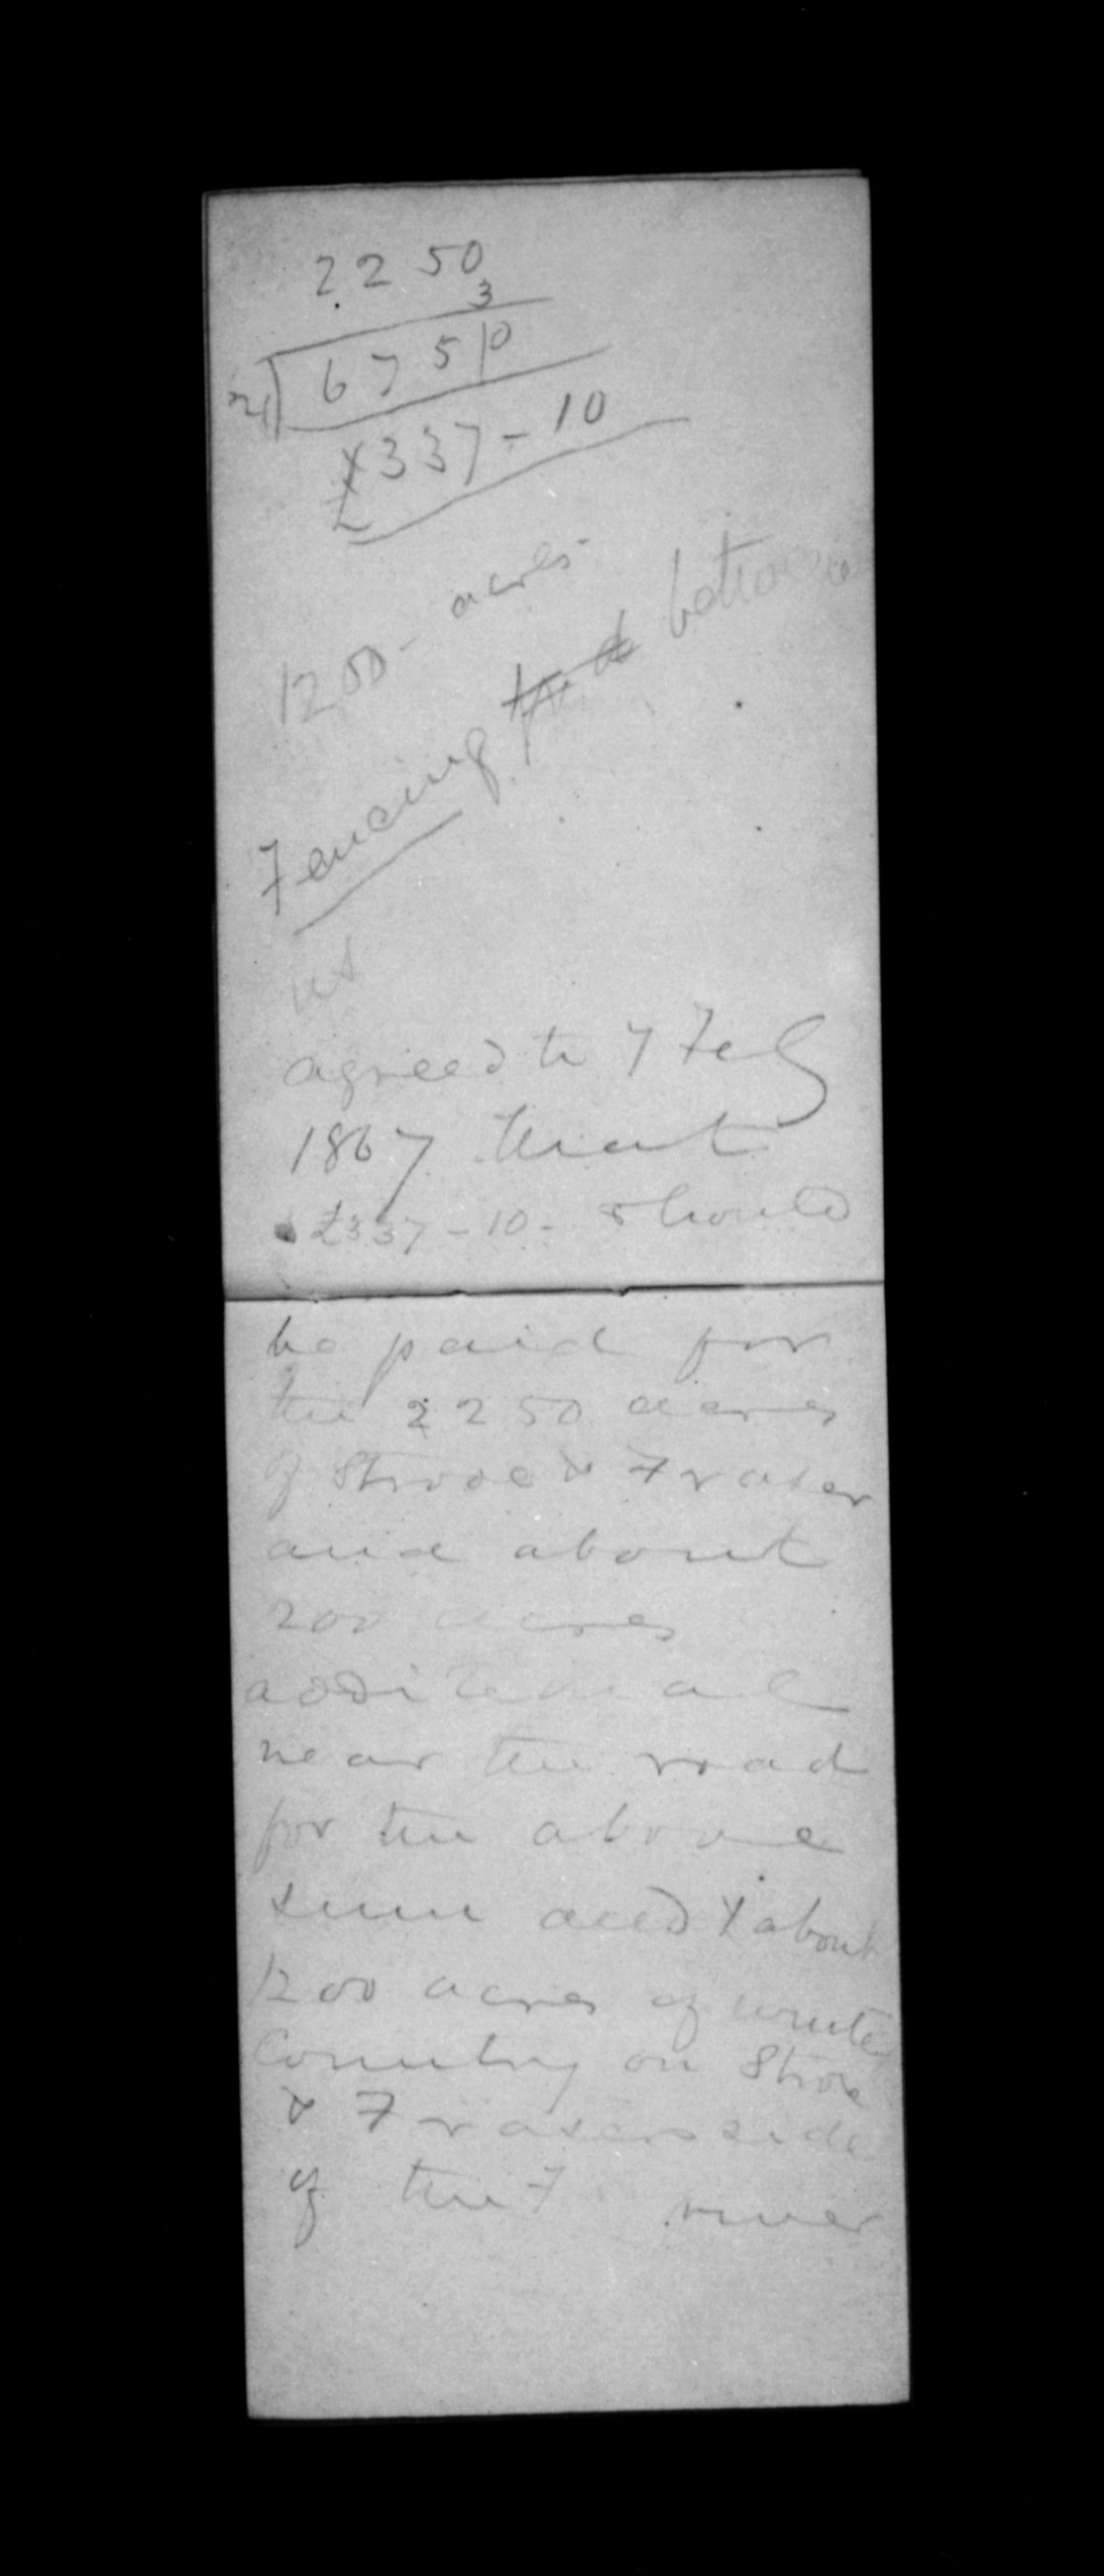 2250
3
2|6750
£337-10
1200 acres
Fencing
agreed to 7 Feb
1867 that
£337-10- should
be paid for
the 2250 acres
of Shroe & Fraser
and about
200 acres
additional
near the road
for the above
sum and X about
1200 acres of winter
Country on Shroe
& Frasers side
of the river